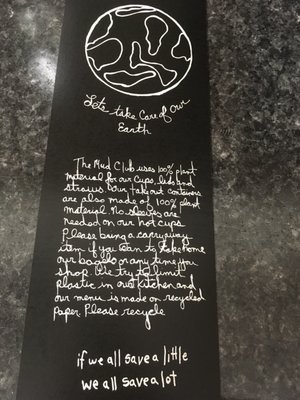 Let's take Care of Our
Earth
The Mud Club uses 100% plant
material for our Cups, lids and
straws. Our take out containers
are also made of 100% plant
material. No sleeves are
needed on our hot cups.
Please bring a carryaway
item if you plan to take home
our bagels or any time you
shop. We try to limit
plastic in our kitchen and
our menu is made on recycled
paper. Please recycle
if we all save a little
we all save a lot